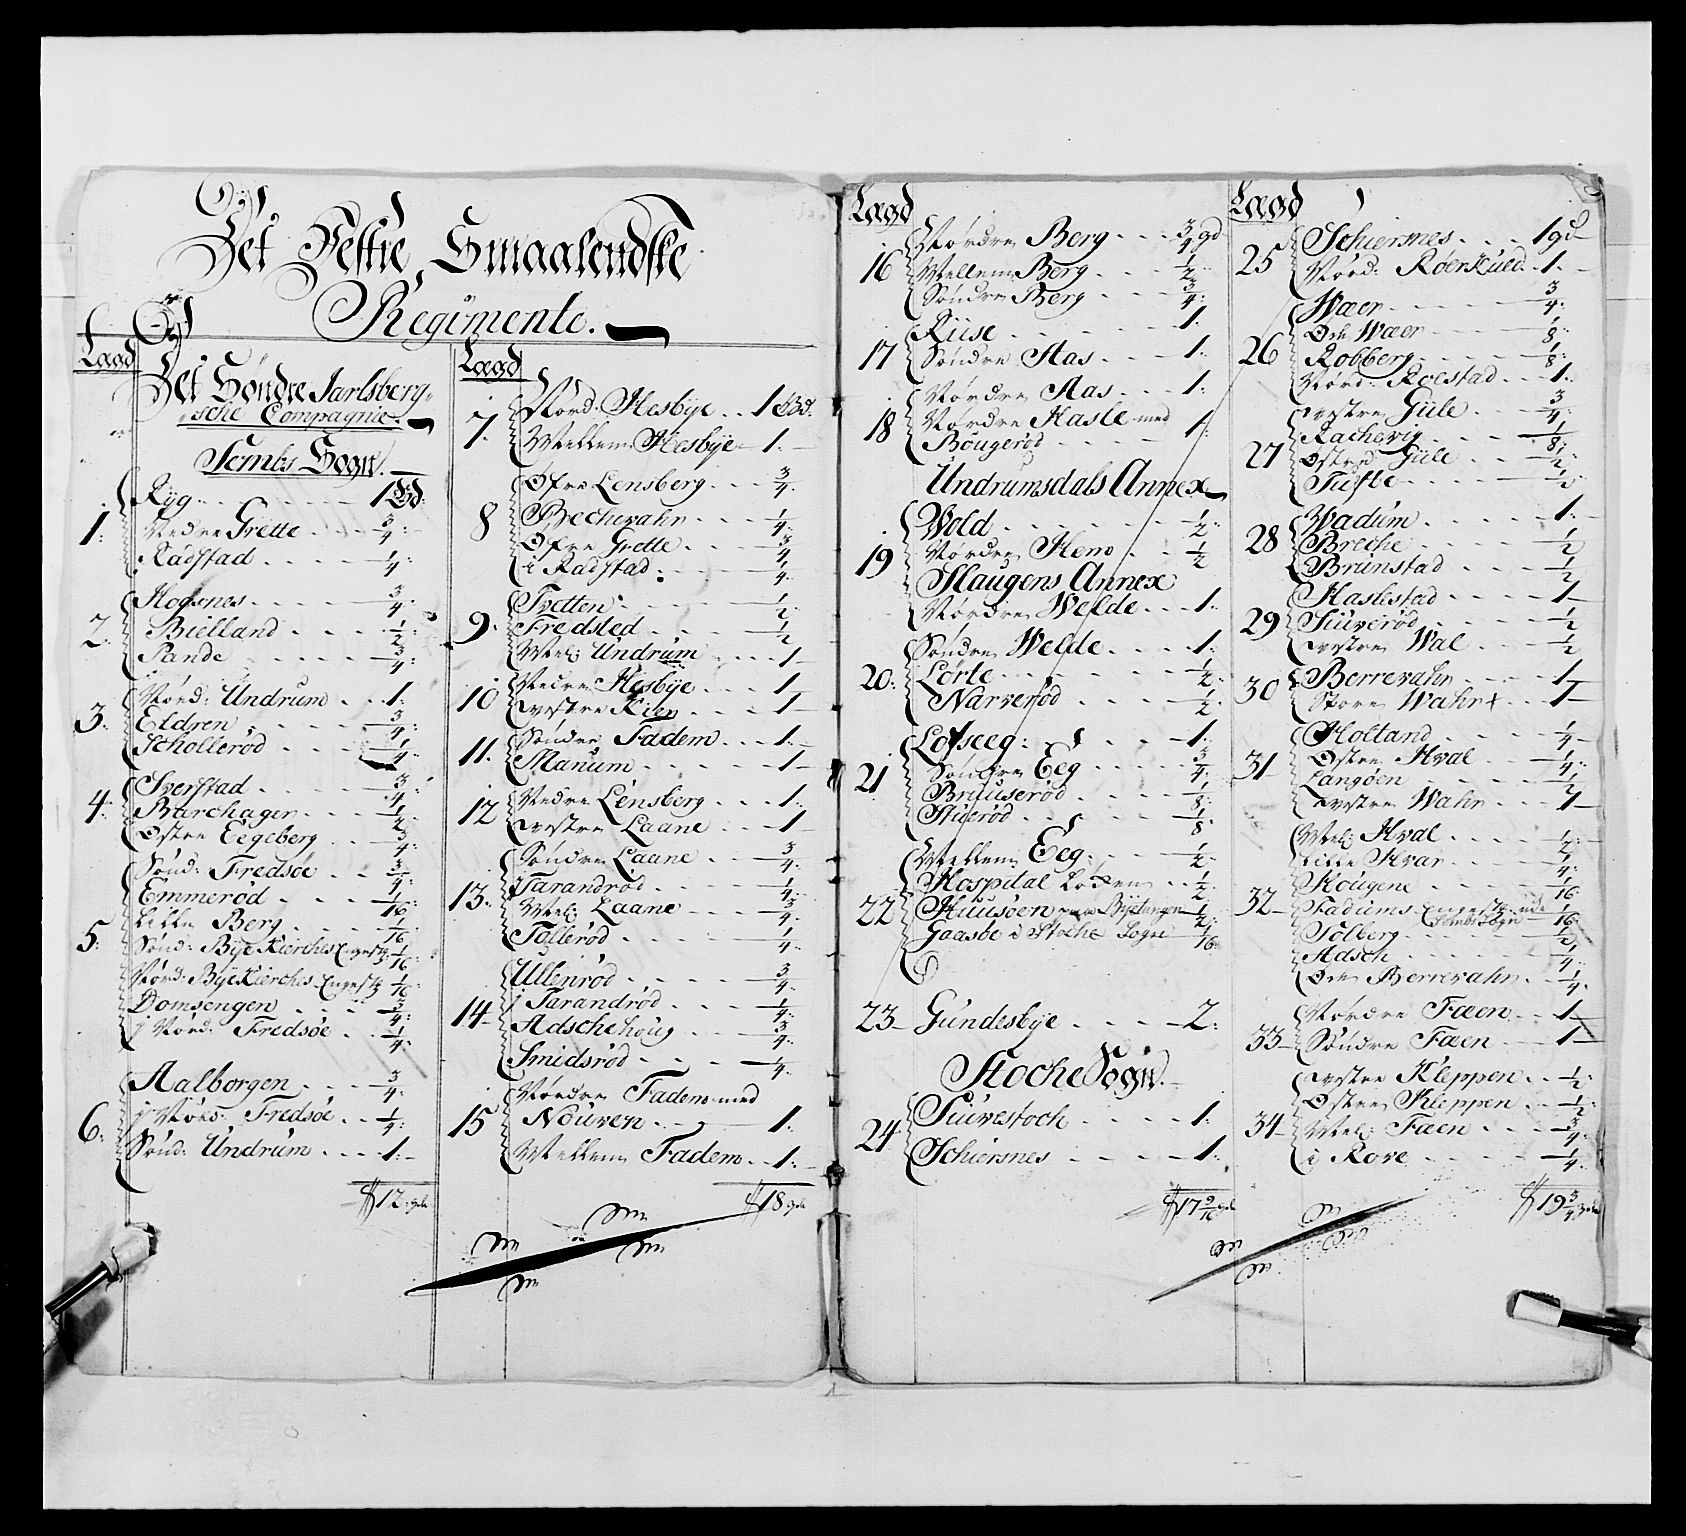 Det Veste Smaalendske
Regimente.
Lægd
Det Søndre Jarlsberg-
sche Compagnie.
Sembs Sogn.
1. Ryg 1 Gd:
Nedre Grette 3/4
Radstad 1/4
2. Hogsnes 3/4
Bielland 1/2
Sande 3/4
3. Nord: Undrum 1
Eldren 3/4
Schollerød 1/4
4. Sverstad 3/4
Barchager 1/2
Østre Eegeberg 3/4
5. Sønd: Fredsøe 3/4
Emmerød 1/16
Lille Berg 1/16
Sønd: Bye Kierches Engesty 1/16
Nord: Bye Kierches Engesty 1/16
Domsengen 3/4
i Nord: Fredsøe 1/4
6. Aalborgen 3/4
i Nord: Fredsøe 1/4
Sønd: Undrum 1
12 gde
Lægd
7. Nord: Hesbye 1 Gd.
Mellem Hesbye 1
8 Øfre Lensberg 3/4
Bechevahr 1/4
Øfre Grette 3/4
i Radstad 1/4
9. Tvetten 1/2
Fredsted 1/2
Mel: Undrum 1
10 Nedre Hesbye 1
vestre Kier 1
11. Søndre Fadem 1
Manum 1
12 Nedre Lensberg 1
vestre Laane 1
13. Søndre Laane 3/4
Tarandrød 1/4
Mel: Laane 3/4
Tollerød 1/4
14 Ullenrød 3/4
i Tarandrød 1/4
Adschehoug 3/4
Smidsrød 1/4
15 Nordre Fadem med
Nouven 1
Mellem Fadem 1
18 gde
Lægd
16 Nordre Berg 3/4 gd
Mellem Berg 1/2
Søndre Berg 3/4
17 Riise 1
Søndre Aas 1
18 Nordre Aas 1
Nordre Hasle med
Bougerød 1
Undrumsdals Annex
19 Wold 1/2
Nordre Hem 1/2
Slaugens Annex
Nordre Welde 1
20. Søndre Welde 1
Lørte 1/2
Narverød 1/2
21 Lofseeg 1
Søndre Eeg 3/4
Bruuserød 1/8
Stuerød 1/8
22 Mellem Eeg 1/2
Hospital Loden 1/2
Huusøen paa Byetangen 1/2
Gaasbe i Stoche Sogn 1/16
23 Gundesbye 2
Stoche Sogn.
24 Siuvestoch 1
Schiersnes 1
17 9/16 gde
Lægd
25 Schiersnes 1 gd
Nord: Røerkuld 1
26 Wæer 3/4
Øde Wæer 1/8
Robberg 1/8
Nord: Roestad 1
27 vestre Gule 3/4
Rachevig 1/8
Østre Gule 1/2
Tufte 1/2
28 Wadum 1
Breche 1/2
Brunstad 1/2
29 Haslestad 1
Siuverød 1/2
vestre Wal 1/2
30 Berrevahr 1
Store Wahr 1
31 Holtand 1/4
Østre Hval 1/4
Langøen 1/2
vestre Wahr 1
32 Mel: Hval 1/2
Lille Hvar 1/4
Hougene 1/16
Fadums Engesty ude
Sembs Sogn 1/16
Solberg 1/2
Adsch 1/4
Øde Berrevahr 1/4
33 Nordre Fæen 1
Søndre Fæen 1
34 vestre Kleppen 1/2
Østre Kleppen 1/2
Mel: Fæen 3/4
i Rove 1/4
19 3/4 gde